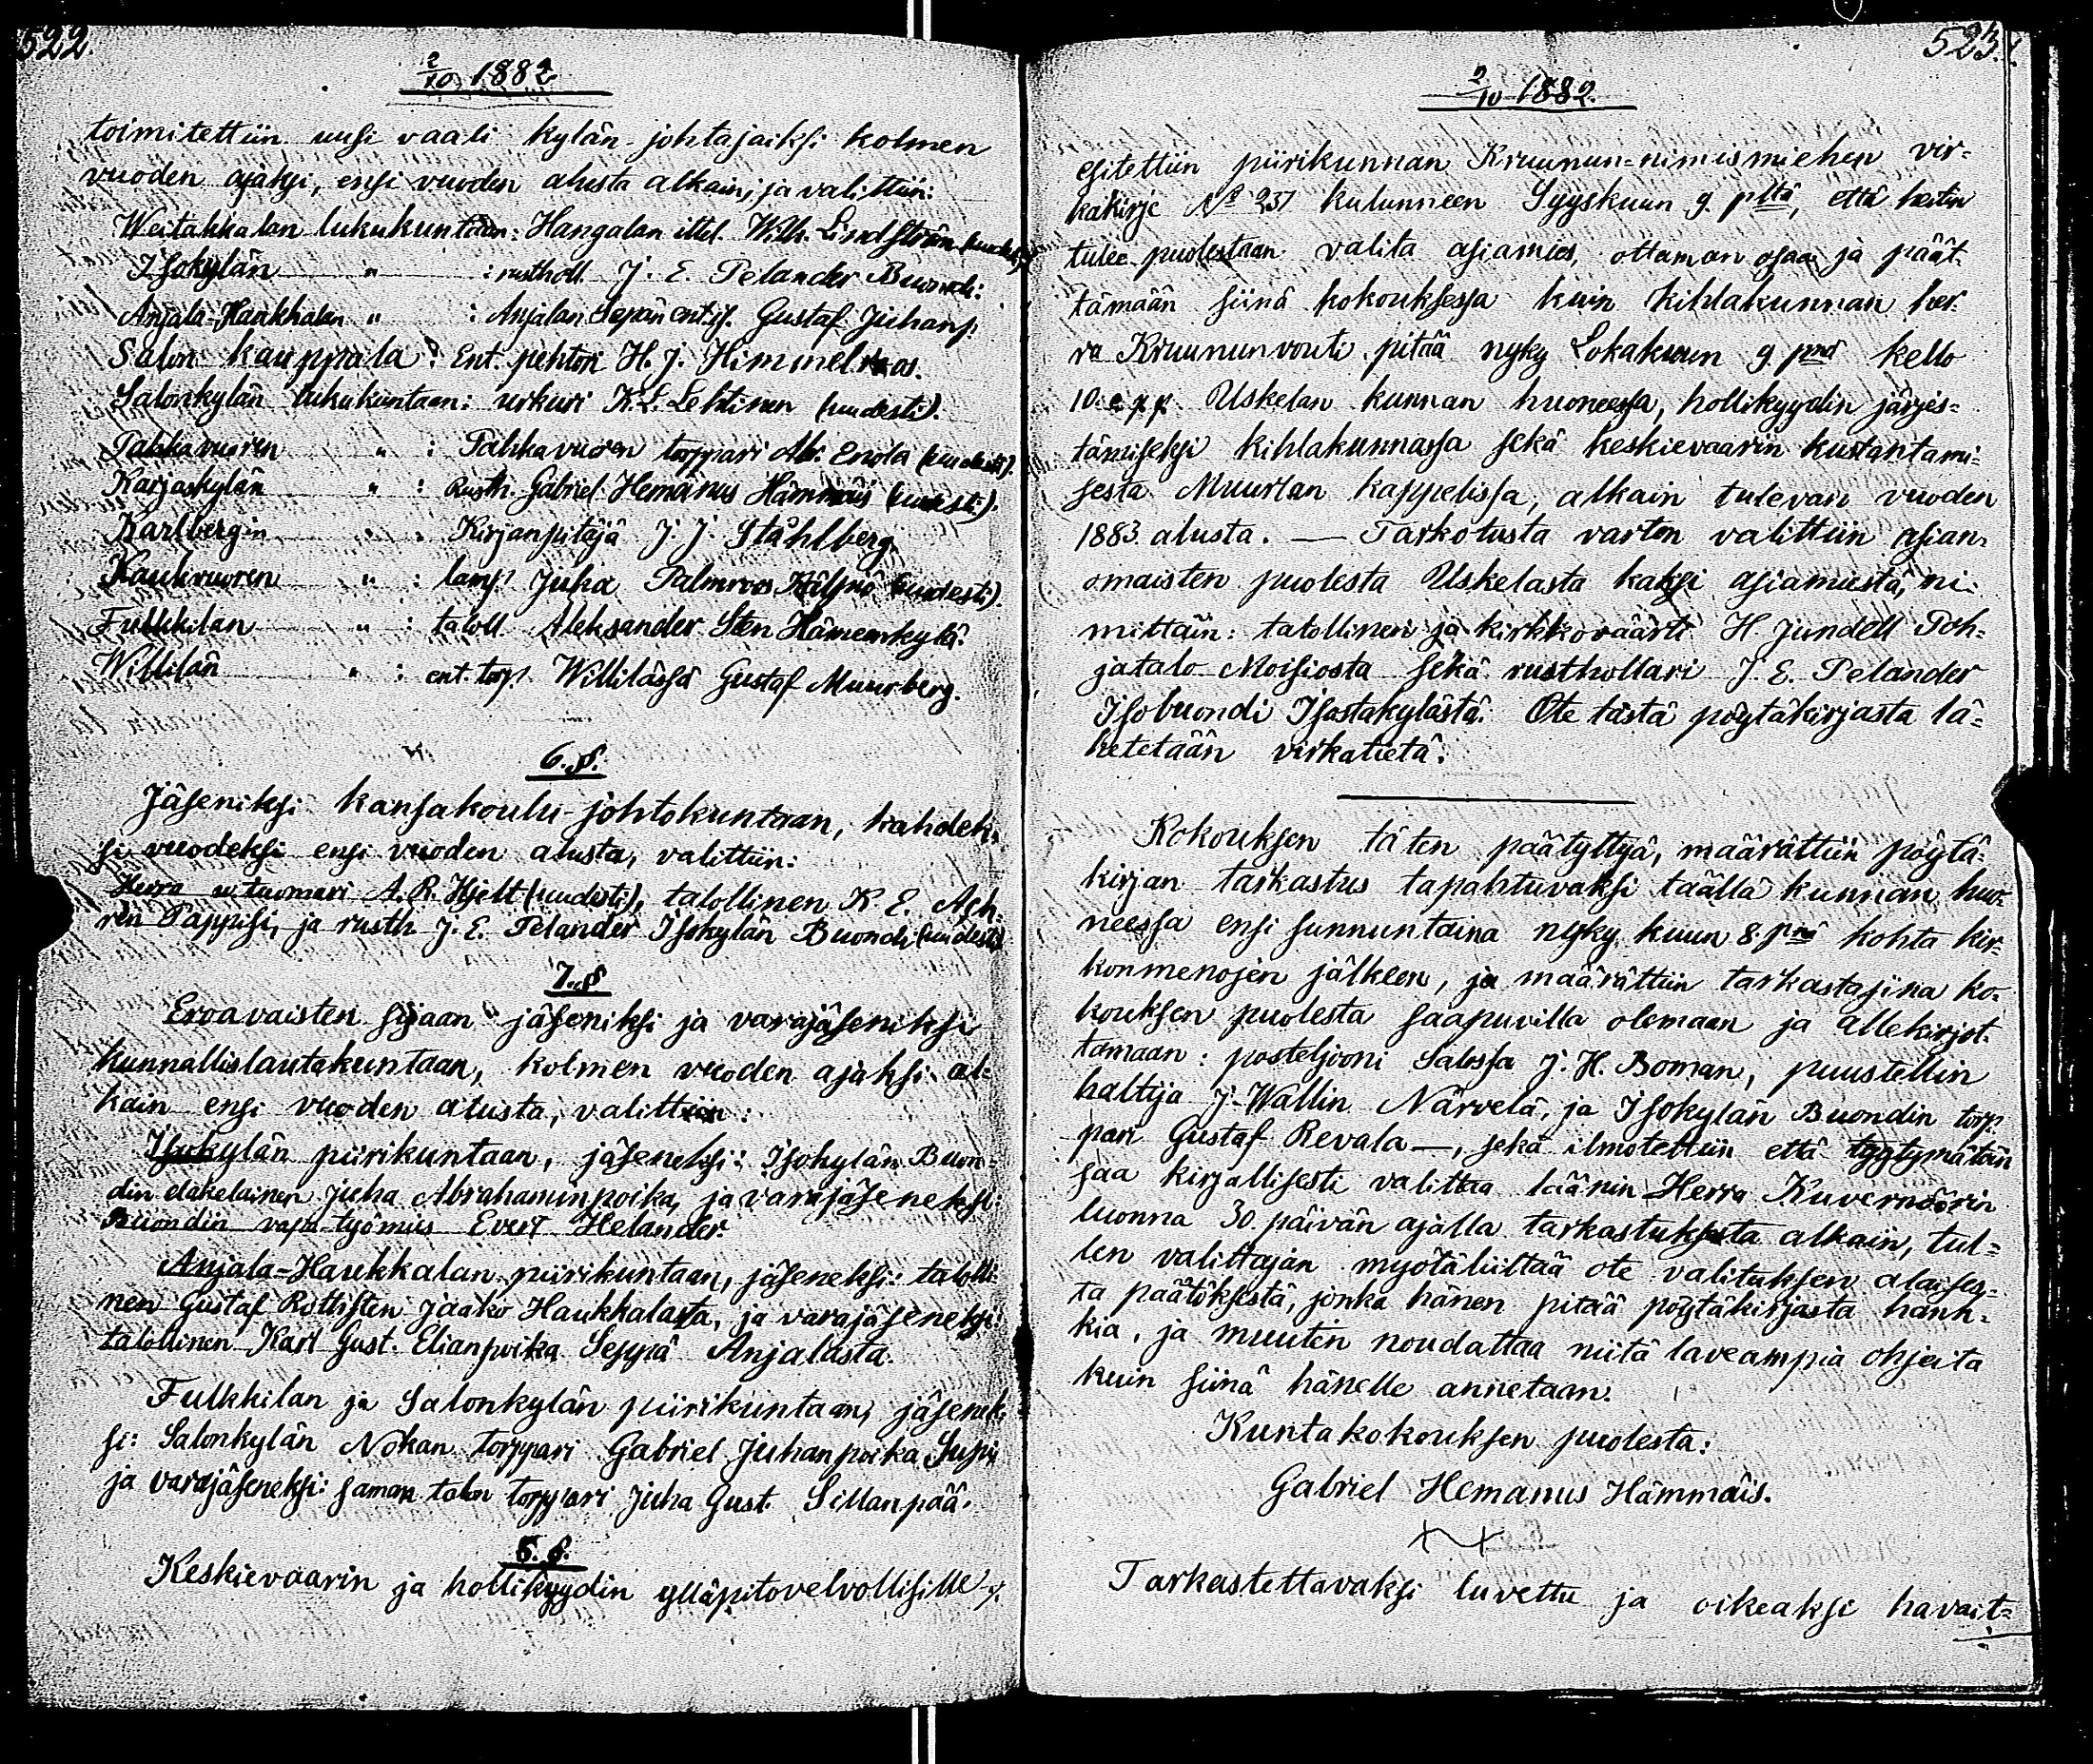 522.
2/10 1882
toimitettiin uusi vaali kylän-johtajaiksi kolmen
vuoden ajaksi, ensi vuoden alusta alkain; ja valittiin:
Weitakkalan lukukuntaan: Hangalan ittel. Wilh. Lindström (uudesti)
Isokylän " : rustholl. J. E. Pelander Buondi:
Anjala-Haukkalan " : Anjalan Sepän ent. Gustaf Juhanp.
Salon kauppala: Ent. pehtori H. J. Himmelroos.
Salonkylän lukukuntaan: urkuri K. L. Lehtinen (uudesti).
Pahkavuoren " : Pahkavuoren torppari Abr. Enola (uudesti).
Karjaskylän " : Rusth. Gabriel Hemänus Hämmäis (uudesti).
Karlbergin " : Kirjanpitäjä J. J. Ståhlberg
Kaukvuoren " : lamp. Juha Palmroos (uudesti).
Fulkkilan " : taloll. Aleksander Sten Hämeenkylä.
Willilän " : ent. torp. Willilässä Gustaf Muurberg.
6. §.
Jäseniksi kansakoulu-johtokuntaan, kahdek-
si vuodeksi ensi vuoden alusta, valittiin:
Herra tuomari A. R. Hjelt (uudesti), talollinen K. E. Ash-
rén Pappisi, ja rusth. J. E. Pelander Isokylän Buondi (uudesti)
7. §
Eroavaisten sijaan jäseniksi ja varajäseniksi
kunnallislautakuntaan, kolmen vuoden ajaksi al-
kain ensi vuoden alusta, valittiin:
Isokylän piirikuntaan, jäseneksi: Isokylän Buon-
din eläkeläinen Juha Abrahaminpoika, ja varajäseneksi:
Buondin vapa-työmies Evert Helander.
Anjala-Haukkalan piirikuntaan, jäseneksi: talolli-
nen Gustaf Rotkisten Jaakko Haukkalasta, ja varajäseneksi:
talollinen Karl Gust. Elianpoika Seppä Anjalasta.
Fulkkilan ja Salonkylän piirikuntaan, jäsenek-
si: Salonkylän Nokan torppari Gabriel Juhanpoika Supi,
ja varajäseneksi: saman talon torppari Juha Gust. Sillanpää.
8. §.
Keskievaarin ja hollikyydin ylläpitovelvollisille
523.
2/10 1882.
esitettiin piirikunnan Kruunun-nimismiehen vir-
kakirje No 231 kulunneen Syyskuun 9 pltä, että heitin
tulee puolestaan valita asiamies, ottaman osaa ja päät-
tämään siinä kokouksessa kuin kihlakunnan her-
ra Kruununvouti pitää nyky Lokakuun 9 pnä kello
10 e.p.p. Uskelan kunnan huoneessa, hollikyydin järjes-
tämiseksi kihlakunnassa sekä keskievaarin kustantami-
sesta Muurlan kappelissa, alkain tulevan vuoden
1883 alusta. — Tarkotusta varten valittiin asian-
omaisten puolesta Uskelasta kaksi asiamiestä, ni-
mittäin: talollinen ja kirkkoväärti H. Jundell Poh-
jatalo Moisiosta sekä rusthollari J. E. Pelander
Isobuondi Isostakylästä. Ote tästä pöytäkirjasta lä-
hetetään virkatietä.
Kokouksen täten päätyttyä, määrättiin pöytä-
kirjan tarkastus tapahtuvaksi täällä kunnan huo-
neessa ensi sunnuntaina nyky kuun 8 pnä kohta kir-
konmenojen jälkeen, ja määrättiin tarkastajina ko-
kouksen puolesta saapuvilla olemaan ja allekirjot-
tamaan: posteljooni Salossa J. H. Boman, puustellin
haltija J. Wallin Närvelä, ja Isokylän Buondin torp-
pari Gustaf Revala —, sekä ilmotettiin että tyytymätöin
saa kirjallisesti valittaa läänin Herra Kuvernöörin
luonna 30 päivän ajalla tarkastuksesta alkain, tul-
len valittajan myötäliittää ote valituksen alaises-
ta päätöksestä, jonka hänen pitää pöytäkirjasta hank-
kia, ja muutin noudattaa niitä laveampia ohjeita
kuin siinä hänelle annetaan.
Kuntakokouksen puolesta:
Gabriel Hemanus Hämmäis.
Tarkastettavaksi luvettu ja oikeaksi havait-